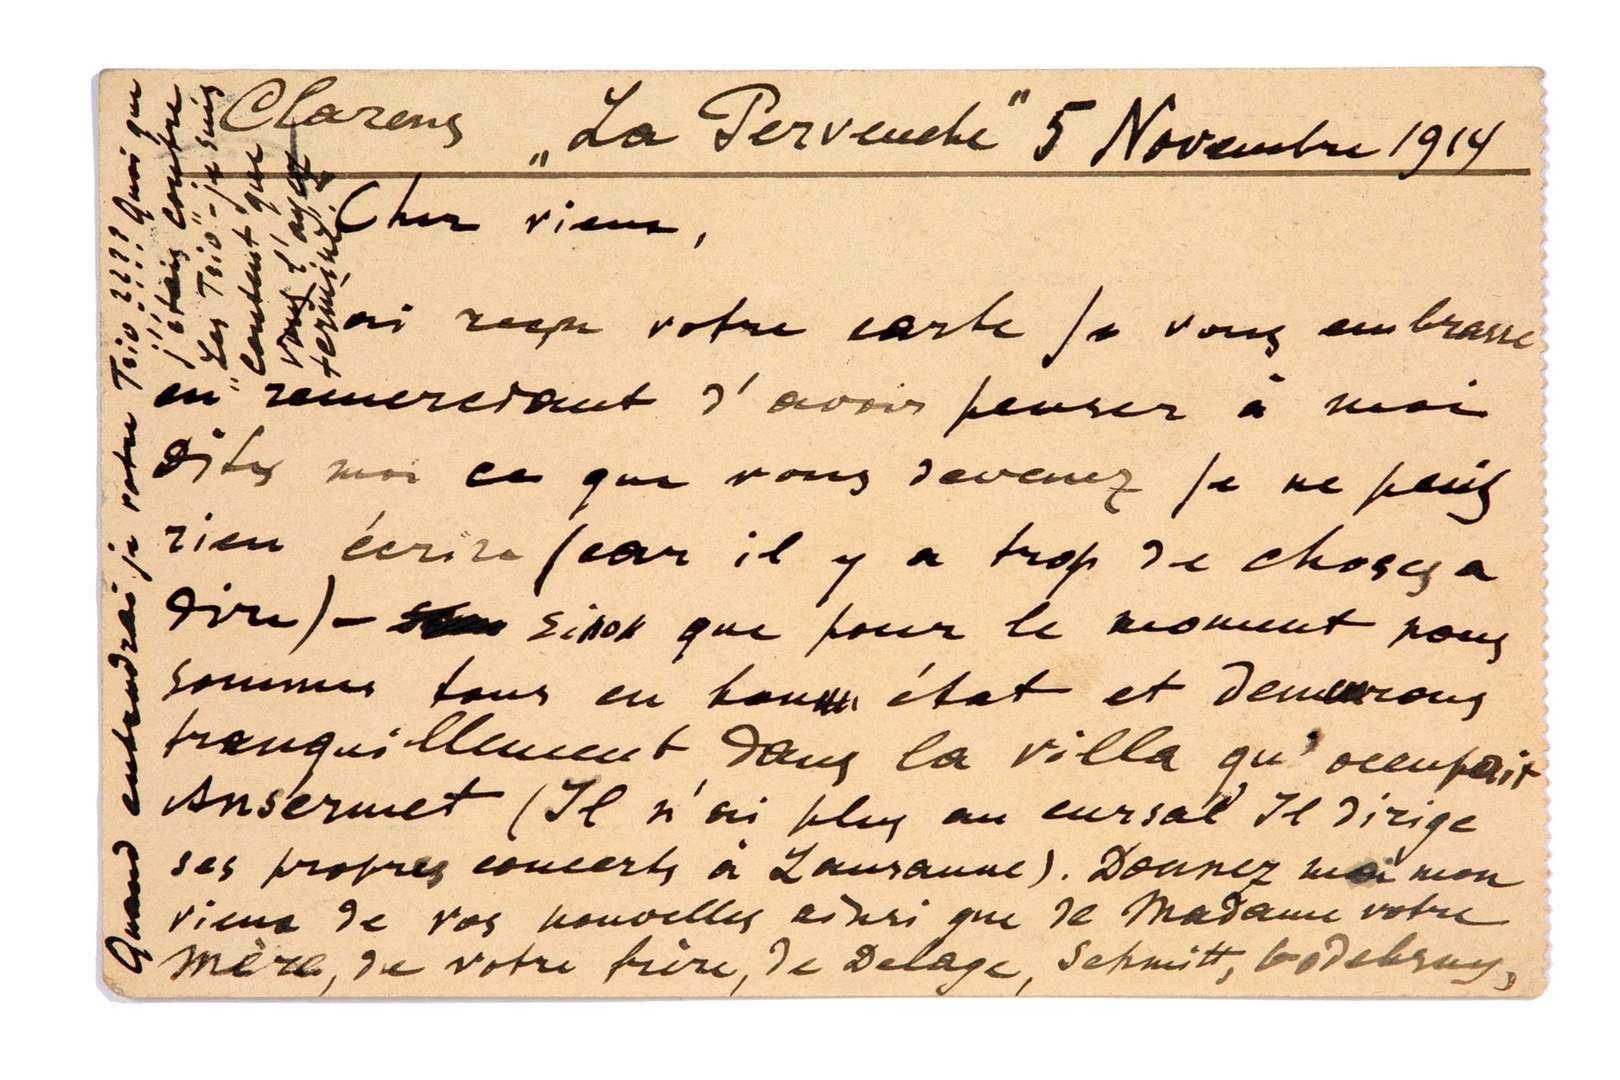 Clarens „La Pervenche" 5 Novembre 1914
Cher vieux,
ai reçu votre carte je vous embrasse
en remerciant d'avoir penser à moi
Dites moi ce que vous devenez je ne puis
rien écrire (car il y a trop de choses a
dire) – sinon que pour le moment nous
sommes tous en bonn état et demeurons
tranquillement dans la villa qu'occupait
Ansermet (Il n'ai plus au cursal Il dirige
ses propres concerts à Lausanne). Donnez moi mon
vieux de vos nouvelles ainsi que de Madame votre
Mère, de votre frère, de Delage, Schmitt,
Quand entendrai je votre Trio ???? Quoi que
j'étais contre
„Les Trio" – je suis
content que
vous l'ayez
terminé.